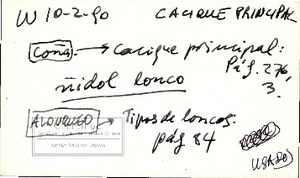 W 10-2-90 CACIQUE PRINCIPAL
Coña → cacique principal:
Pág. 276,
3.
ñidol lonco
→ Tipos de loncos:
pág 84
USADO